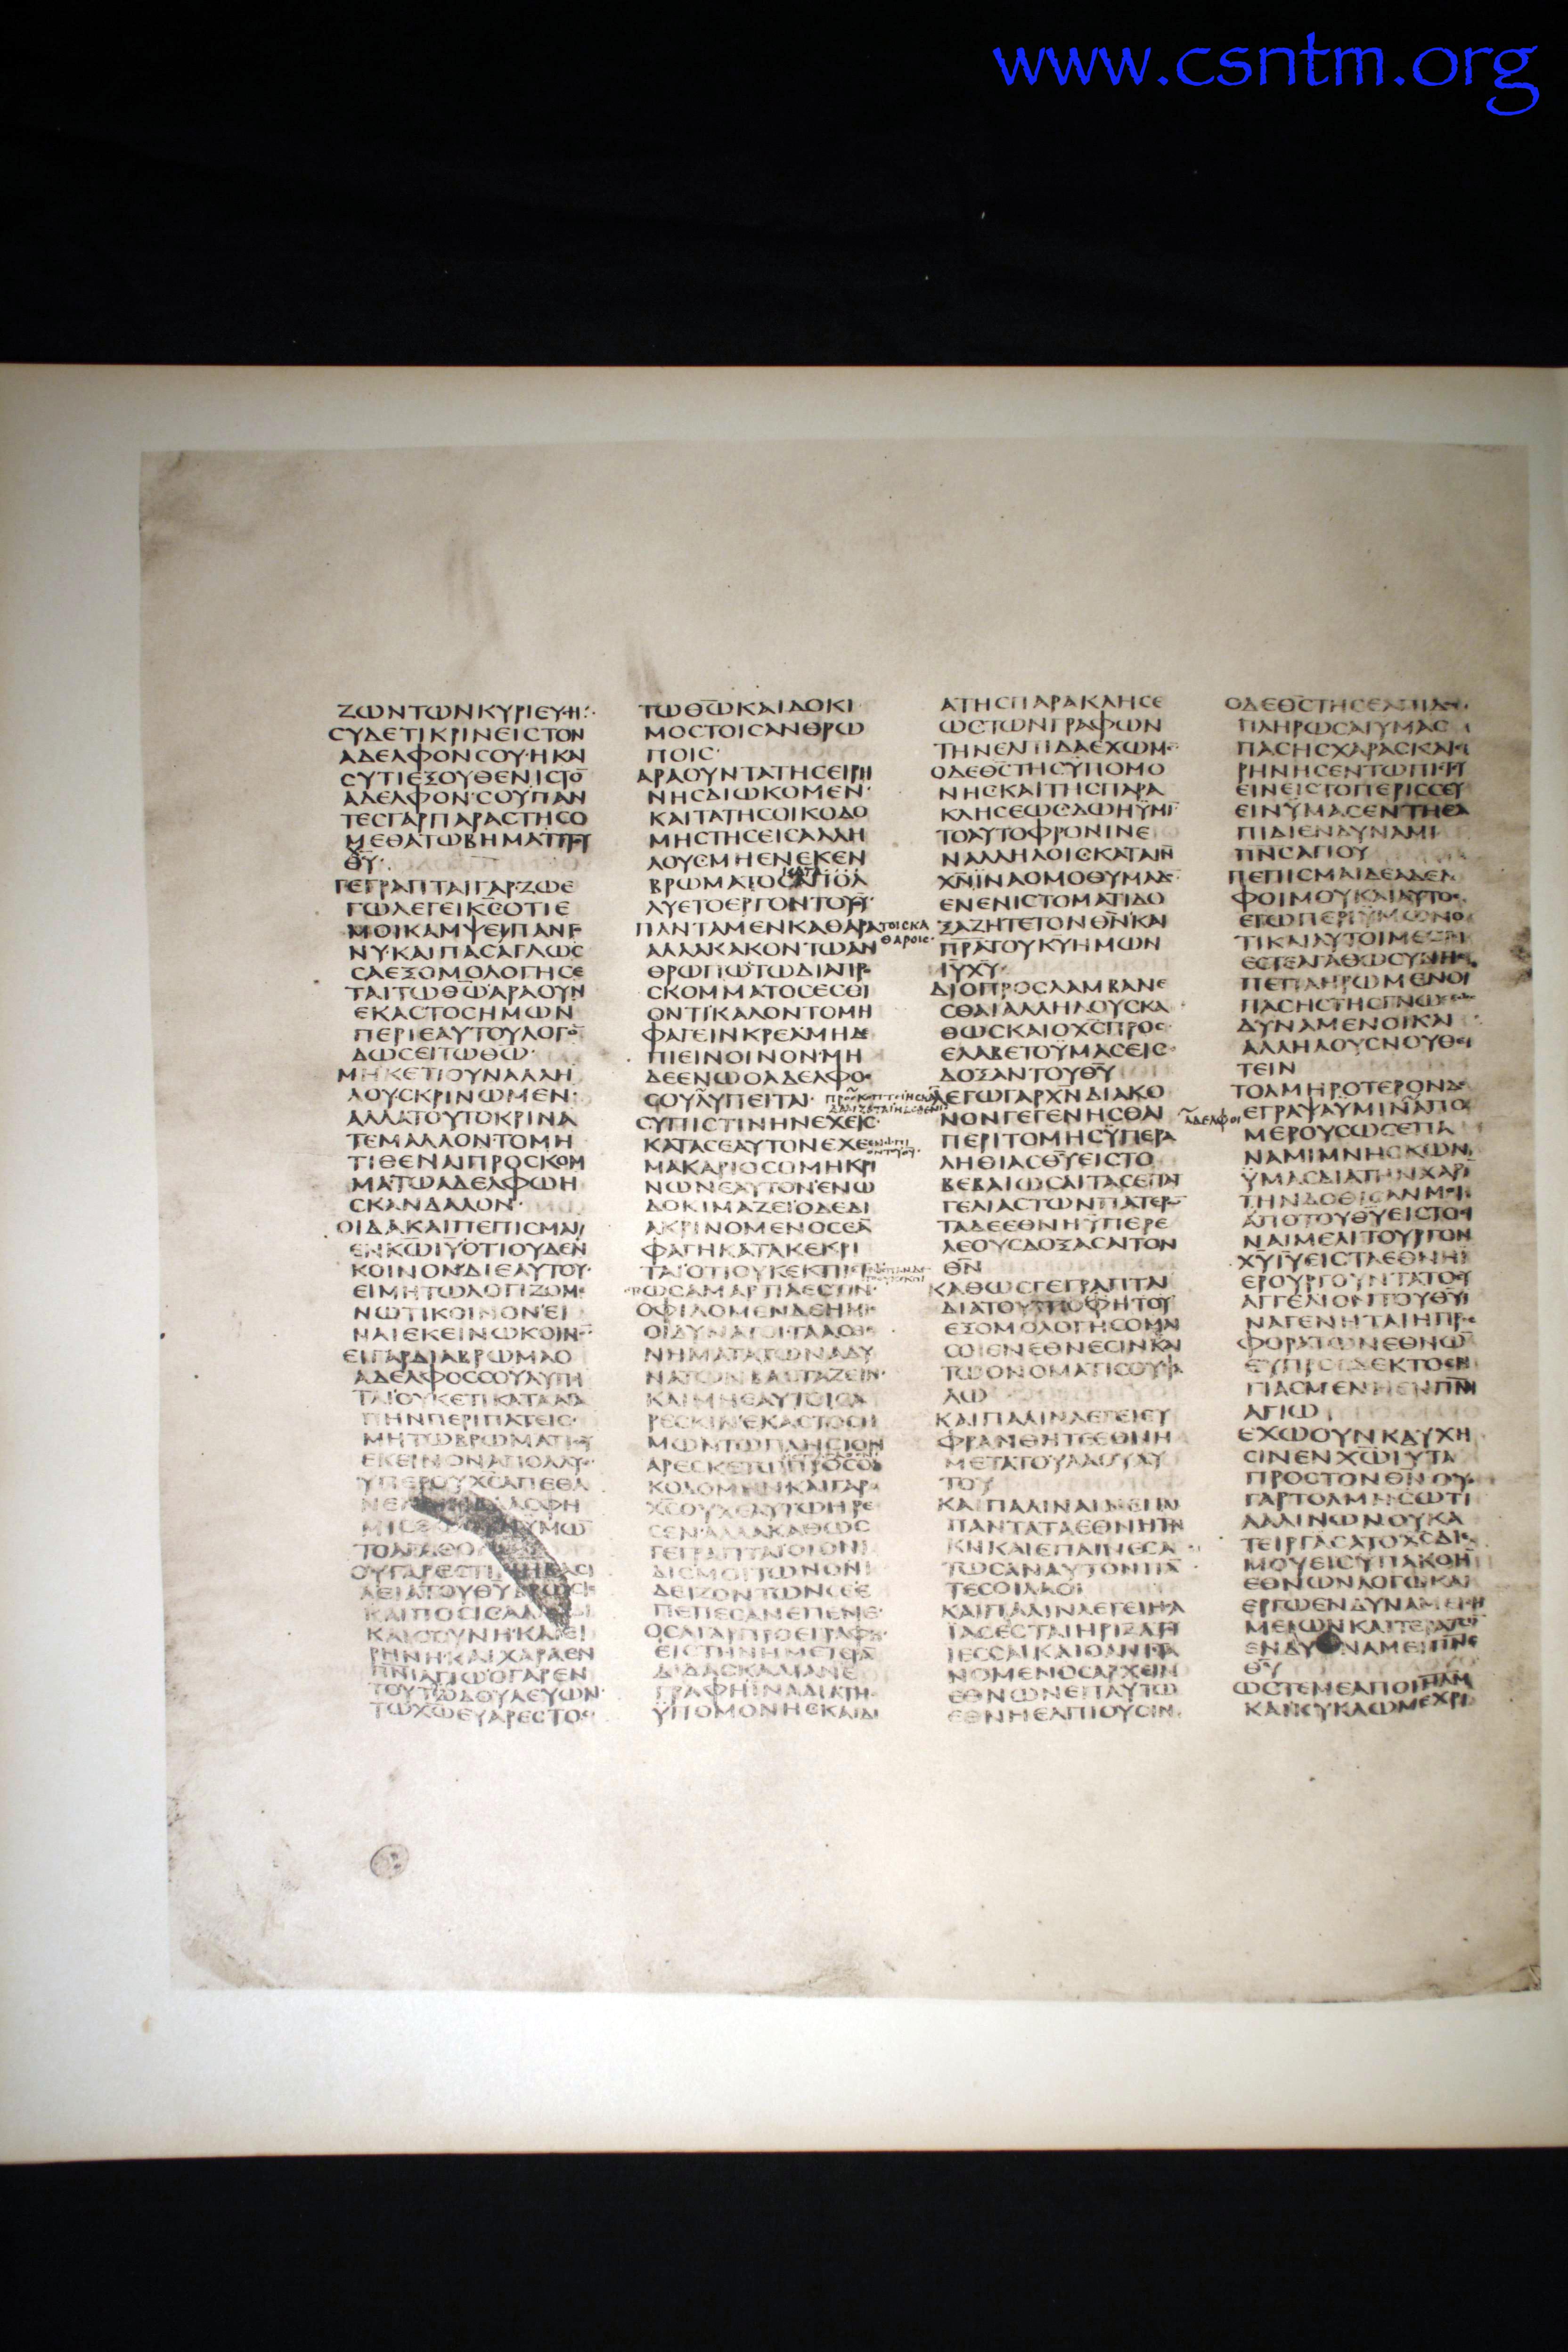 www.csntm.org
ΖΩΝΤΩΝΚΥΡΙΕΥΗ
ϹΥΔΕΤΙΚΡΙΝΕΙϹΤΟΝ
ΑΔΕΛΦΟΝϹΟΥ·ΗΚΑΙ
ϹΥΤΙΕΞΟΥΘΕΝΙϹΤΟ̅
ΑΔΕΛΦΟΝϹΟΥΠΑΝ
ΤΕϹΓΑΡΠΑΡΑϹΤΗϹΟ
ΜΕΘΑΤΩΒΗΜΑΤΙΤΟΥ
Θ̅Υ̅·
ΓΕΓΡΑΠΤΑΙΓΑΡ·ΖΩΕ
ΓΩΛΕΓΕΙΚ̅Ϲ̅ΟΤΙΕ
ΜΟΙΚΑΜΨΕΙΠΑΝΓ
ΝΥ·ΚΑΙΠΑϹΑΓΛΩϹ
ϹΑΕΞΟΜΟΛΟΓΗϹΕ
ΤΑΙΤΩΘ̅Ω̅ΑΡΑΟΥΝ
ΕΚΑϹΤΟϹΗΜΩΝ
ΠΕΡΙΕΑΥΤΟΥΛΟΓΟ̅
ΔΩϹΕΙΤΩΘ̅Ω̅·
ΜΗΚΕΤΙΟΥΝΑΛΛΗ
ΛΟΥϹΚΡΙΝΩΜΕΝ·
ΑΛΛΑΤΟΥΤΟΚΡΙΝΑ
ΤΕΜΑΛΛΟΝΤΟΜΗ
ΤΙΘΕΝΑΙΠΡΟϹΚΟΜ
ΜΑΤΩΑΔΕΛΦΩΗ
ϹΚΑΝΔΑΛΟΝ·
ΟΙΔΑΚΑΙΠΕΠΙϹΜΑΙ
ΕΝΚ̅Ω̅Ι̅Υ̅ΟΤΙΟΥΔΕΝ
ΚΟΙΝΟΝΔΙΕΑΥΤΟΥ·
ΕΙΜΗΤΩΛΟΓΙΖΟΜΕ
ΝΩΤΙΚΟΙΝΟΝΕΙ
ΝΑΙΕΚΕΙΝΩΚΟΙΝΟ̅
ΕΙΓΑΡΔΙΑΒΡΩΜΑΟ
ΑΔΕΛΦΟϹϹΟΥΛΥΠΗ
ΤΑΙΟΥΚΕΤΙΚΑΤΑΑΓΑ
ΠΗΝΠΕΡΙΠΑΤΕΙϹ·
ΜΗΤΩΒΡΩΜΑΤΙϹΟΥ
ΕΚΕΙΝΟΝΑΠΟΛΛΥΕ
ΥΠΕΡΟΥΧ̅Ϲ̅ΑΠΕΘΑ
ΟΥΓΑΡΕϹΤΙΝ
ΚΑΙΠΟϹΙϹΑΛΛΑΔΙ
ΚΑΙΟϹΥΝΗΚΑΙΕΙ
ΡΗΝΗΚΑΙΧΑΡΑΕΝ
Π̅Ν̅Ι̅ΑΓΙΩΟΓΑΡΕΝ
ΤΟΥΤΩΔΟΥΛΕΥΩΝ
ΤΩΧ̅Ω̅ΕΥΑΡΕϹΤΟϹ
ΤΩΘ̅Ω̅ΚΑΙΔΟΚΙ
ΜΟϹΤΟΙϹΑΝΘΡΩ
ΠΟΙϹ·
ΑΡΑΟΥΝΤΑΤΗϹΕΙΡΗ
ΝΗϹΔΙΩΚΟΜΕΝ·
ΚΑΙΤΑΤΗϹΟΙΚΟΔΟ
ΜΗϹΤΗϹΕΙϹΑΛΛΗ
ΛΟΥϹΜΗΕΝΕΚΕΝ
ΒΡΩΜΑΤΟϹ
ΛΥΕΤΟΕΡΓΟΝΤΟΥΘ̅Υ̅
ΠΑΝΤΑΜΕΝΚΑΘΑΡΑ
ΤΟΙϹΚΑ
ΘΑΡΟΙϹ·
ΑΛΛΑΚΑΚΟΝΤΩΑΝ
ΘΡΩΠΩΤΩΔΙΑΠΡ
ϹΚΟΜΜΑΤΟϹΕϹΘΙ
ΟΝΤΙΚΑΛΟΝΤΟΜΗ
ΦΑΓΕΙΝΚΡΕΑΜΗΔΕ
ΠΙΕΙΝΟΙΝΟΝΜΗ
ΔΕΕΝΩΟΑΔΕΛΦΟϹ
ϹΟΥΛΥΠΕΙΤΑΙ·
ϹΥΠΙϹΤΙΝΗΝΕΧΕΙϹ·
ΚΑΤΑϹΕΑΥΤΟΝΕΧΕ
ΕΝΩΠΙ
ΟΝΤΟΥΘ̅Υ̅·
ΜΑΚΑΡΙΟϹΟΜΗΚΡΙ
ΝΩΝΕΑΥΤΟΝΕΝΩ
ΔΟΚΙΜΑΖΕΙΟΔΕΔΙ
ΑΚΡΙΝΟΜΕΝΟϹΕΑ̅
ΦΑΓΗΚΑΤΑΚΕΚΡΙ
ΤΑΙΟΤΙΟΥΚΕΚΠΙϹΤ
ΩϹΑΜΑΡΤΙΑΕϹΤΙΝ·
ΟΦΙΛΟΜΕΝΔΕΗΜΙϹ
ΟΙΔΥΝΑΤΟΙΤΑΑϹΘΕ
ΝΗΜΑΤΑΤΩΝΑΔΥ
ΝΑΤΩΝΒΑϹΤΑΖΕΙΝ·
ΚΑΙΜΗΕΑΥΤΟΙϹΑ
ΡΕϹΚΙΝΕΚΑϹΤΟϹΗ
ΜΩΝΤΩΠΛΗϹΙΟΝ
ΚΟΔΟΜΗΝΚΑΙΓΑΡΟ
Χ̅Ϲ̅ΟΥΧΕΑΥΤΩΗΡΕ
ϹΕΝΑΛΛΑΚΑΘΩϹ
ΓΕΓΡΑΠΤΑΙΟΙΟΝΙ
ΔΙϹΜΟΙΤΩΝΟΝΙ
ΔΕΙΖΟΝΤΩΝϹΕΕ
ΠΕΠΕϹΑΝΕΠΕΜΕ·
ΟϹΑΓΑΡΠΡΟΕΓΡΑΦΗ
ΕΙϹΤΗΝΗΜΕΤΕΡΑ
ΔΙΔΑϹΚΑΛΙΑΝΕ
ΓΡΑΦΗΪΝΑΔΙΑΤΗϹ
ΫΠΟΜΟΝΗϹΚΑΙΔΙ
ΑΤΗϹΠΑΡΑΚΛΗϹΕ
ΩϹΤΩΝΓΡΑΦΩΝ
ΤΗΝΕΛΠΙΔΑΕΧΩΜΕ̅
ΟΔΕΘ̅Ϲ̅ΤΗϹΫΠΟΜΟ
ΝΗϹΚΑΙΤΗϹΠΑΡΑ
ΚΛΗϹΕΩϹΔΩΗΫΜΙ̅
ΤΟΑΥΤΟΦΡΟΝΙΝΕ
ΝΑΛΛΗΛΟΙϹΚΑΤΑΙΝ
Χ̅Ν̅ΪΝΑΟΜΟΘΥΜΑΔΟ̅
ΕΝΕΝΙϹΤΟΜΑΤΙΔΟ
ΞΑΖΗΤΕΤΟΝΘ̅Ν̅ΚΑΙ
ΠΡΑΤΟΥΚ̅Υ̅ΗΜΩΝ
Ι̅Υ̅Χ̅Υ̅·
ΔΙΟΠΡΟϹΛΑΜΒΑΝΕ
ϹΘΑΙΑΛΛΗΛΟΥϹΚΑ
ΘΩϹΚΑΙΟΧ̅Ϲ̅ΠΡΟϹΕ
ΕΛΑΒΕΤΟΫΜΑϹΕΙϹ
ΔΟΞΑΝΤΟΥΘ̅Υ̅
ΛΕΓΩΓΑΡΧ̅Ν̅ΔΙΑΚΟ
ΝΟΝΓΕΓΕΝΗϹΘΑΙ
ΠΕΡΙΤΟΜΗϹΫΠΕΡΑ
ΛΗΘΙΑϹΘ̅Υ̅ΕΙϹΤΟ
ΒΕΒΑΙΩϹΑΙΤΑϹΕΠΑ
ΓΕΛΙΑϹΤΩΝΠΑΤΕΡΩ̅
ΤΑΔΕΕΘΝΗΫΠΕΡΕ
ΛΕΟΥϹΔΟΞΑϹΑΙΤΟΝ
Θ̅Ν̅
ΚΑΘΩϹΓΕΓΡΑΠΤΑΙ
ΔΙΑΤΟΥΤΟ
ΕΞΟΜΟΛΟΓΗϹΟΜΑΙ
ϹΟΙΕΝΕΘΝΕϹΙΝΚΑΙ
ΤΩΟΝΟΜΑΤΙϹΟΥΨΑ
ΛΩ
ΚΑΙΠΑΛΙΝΛΕΓΕΙΕΥ
ΦΡΑΝΘΗΤΕΕΘΝΗ
ΜΕΤΑΤΟΥΛΑΟΥΑΥ
ΤΟΥ
ΚΑΙΠΑΛΙΝΑΙΝΕΙΤΕ
ΠΑΝΤΑΤΑΕΘΝΗΤΟΝ
Κ̅Ν̅ΚΑΙΕΠΑΙΝΕϹΑ
ΤΩϹΑΝΑΥΤΟΝΠΑ̅
ΤΕϹΟΙΛΑΟΙ
ΚΑΙΠΑΛΙΝΛΕΓΕΙΗϹΑ
ΪΑϹΕϹΤΑΙΗΡΙΖΑΤΟΥ
ΙΕϹϹΑΙΚΑΙΟΑΝΙϹΤΑ
ΝΟΜΕΝΟϹΑΡΧΕΙΝ
ΕΘΝΩΝΕΠΑΥΤΩ
ΕΘΝΗΕΛΠΙΟΥϹΙΝ·
ΟΔΕΘ̅Ϲ̅ΤΗϹΕΛΠΙΔΟϹ
ΠΛΗΡΩϹΑΙΥΜΑϹ
ΠΑϹΗϹΧΑΡΑϹΚΑΙΕΙ
ΡΗΝΗϹΕΝΤΩΠΙϹΤΕΥ
ΕΙΝΕΙϹΤΟΠΕΡΙϹϹΕΥ
ΕΙΝΫΜΑϹΕΝΤΗΕΛ
ΠΙΔΙΕΝΔΥΝΑΜΙ
Π̅Ν̅Ϲ̅ΑΓΙΟΥ
ΠΕΠΙϹΜΑΙΔΕΑΔΕΛ
ΦΟΙΜΟΥΚΑΙΑΥΤΟϹ
ΕΓΩΠΕΡΙΫΜΩΝΟ
ΤΙΚΑΙΑΥΤΟΙΜΕϹΤΟΙ
ΕϹΤΕΑΓΑΘΩϹΥΝΗϹ
ΠΕΠΛΗΡΩΜΕΝΟΙ
ΠΑϹΗϹΤΗϹΓΝΩϹΕΩϹ
ΔΥΝΑΜΕΝΟΙΚΑΙ
ΑΛΛΗΛΟΥϹΝΟΥΘΕ
ΤΕΙΝ
ΤΟΛΜΗΡΟΤΕΡΟΝΔΕ
ΑΔΕΛΦΟΙ
ΕΓΡΑΨΑΫΜΙΝΑΠΟ
ΜΕΡΟΥϹΩϹΕΠΑ
ΝΑΜΙΜΝΗϹΚΩΝ
ΫΜΑϹΔΙΑΤΗΝΧΑΡΙ̅
ΤΗΝΔΟΘΙϹΑΝΜΟΙ
ΑΠΟΤΟΥΘ̅Υ̅ΕΙϹΤΟΕΙ
ΝΑΙΜΕΛΙΤΟΥΡΓΟΝ
Χ̅Υ̅Ι̅Υ̅ΕΙϹΤΑΕΘΝΗΪ
ΕΡΟΥΡΓΟΥΝΤΑΤΟΕΥ
ΑΓΓΕΛΙΟΝΤΟΥΘ̅Υ̅Ι
ΝΑΓΕΝΗΤΑΙΗΠΡΟϹ
ΦΟΡΑΤΩΝΕΘΝΩ̅
ΕΥΠΡΟϹΔΕΚΤΟϹΗ
ΓΙΑϹΜΕΝΗΕΝΠ̅Ν̅Ι̅
ΑΓΙΩ
ΕΧΩΟΥΝΚΑΥΧΗ
ϹΙΝΕΝΧ̅Ω̅Ι̅Υ̅ΤΑ
ΠΡΟϹΤΟΝΘ̅Ν̅ΟΥ
ΓΑΡΤΟΛΜΗϹΩΤΙ
ΛΑΛΙΝΩΝΟΥΚΑ
ΤΕΙΡΓΑϹΑΤΟΧ̅Ϲ̅ΔΙΕ
ΜΟΥΕΙϹΥΠΑΚΟΗ
ΕΘΝΩΝΛΟΓΩΚΑΙ
ΕΡΓΩΕΝΔΥΝΑΜΕΙϹΗ
ΜΕΙΩΝΚΑΙΤΕΡΑΤΩ̅
ΕΝΔΥΝΑΜΕΙΠ̅Ν̅Ϲ̅
Θ̅Υ̅
ΩϹΤΕΜΕΑΠΟΙΛΗΜ
ΚΑΙΚΥΚΛΩΜΕΧΡΙ